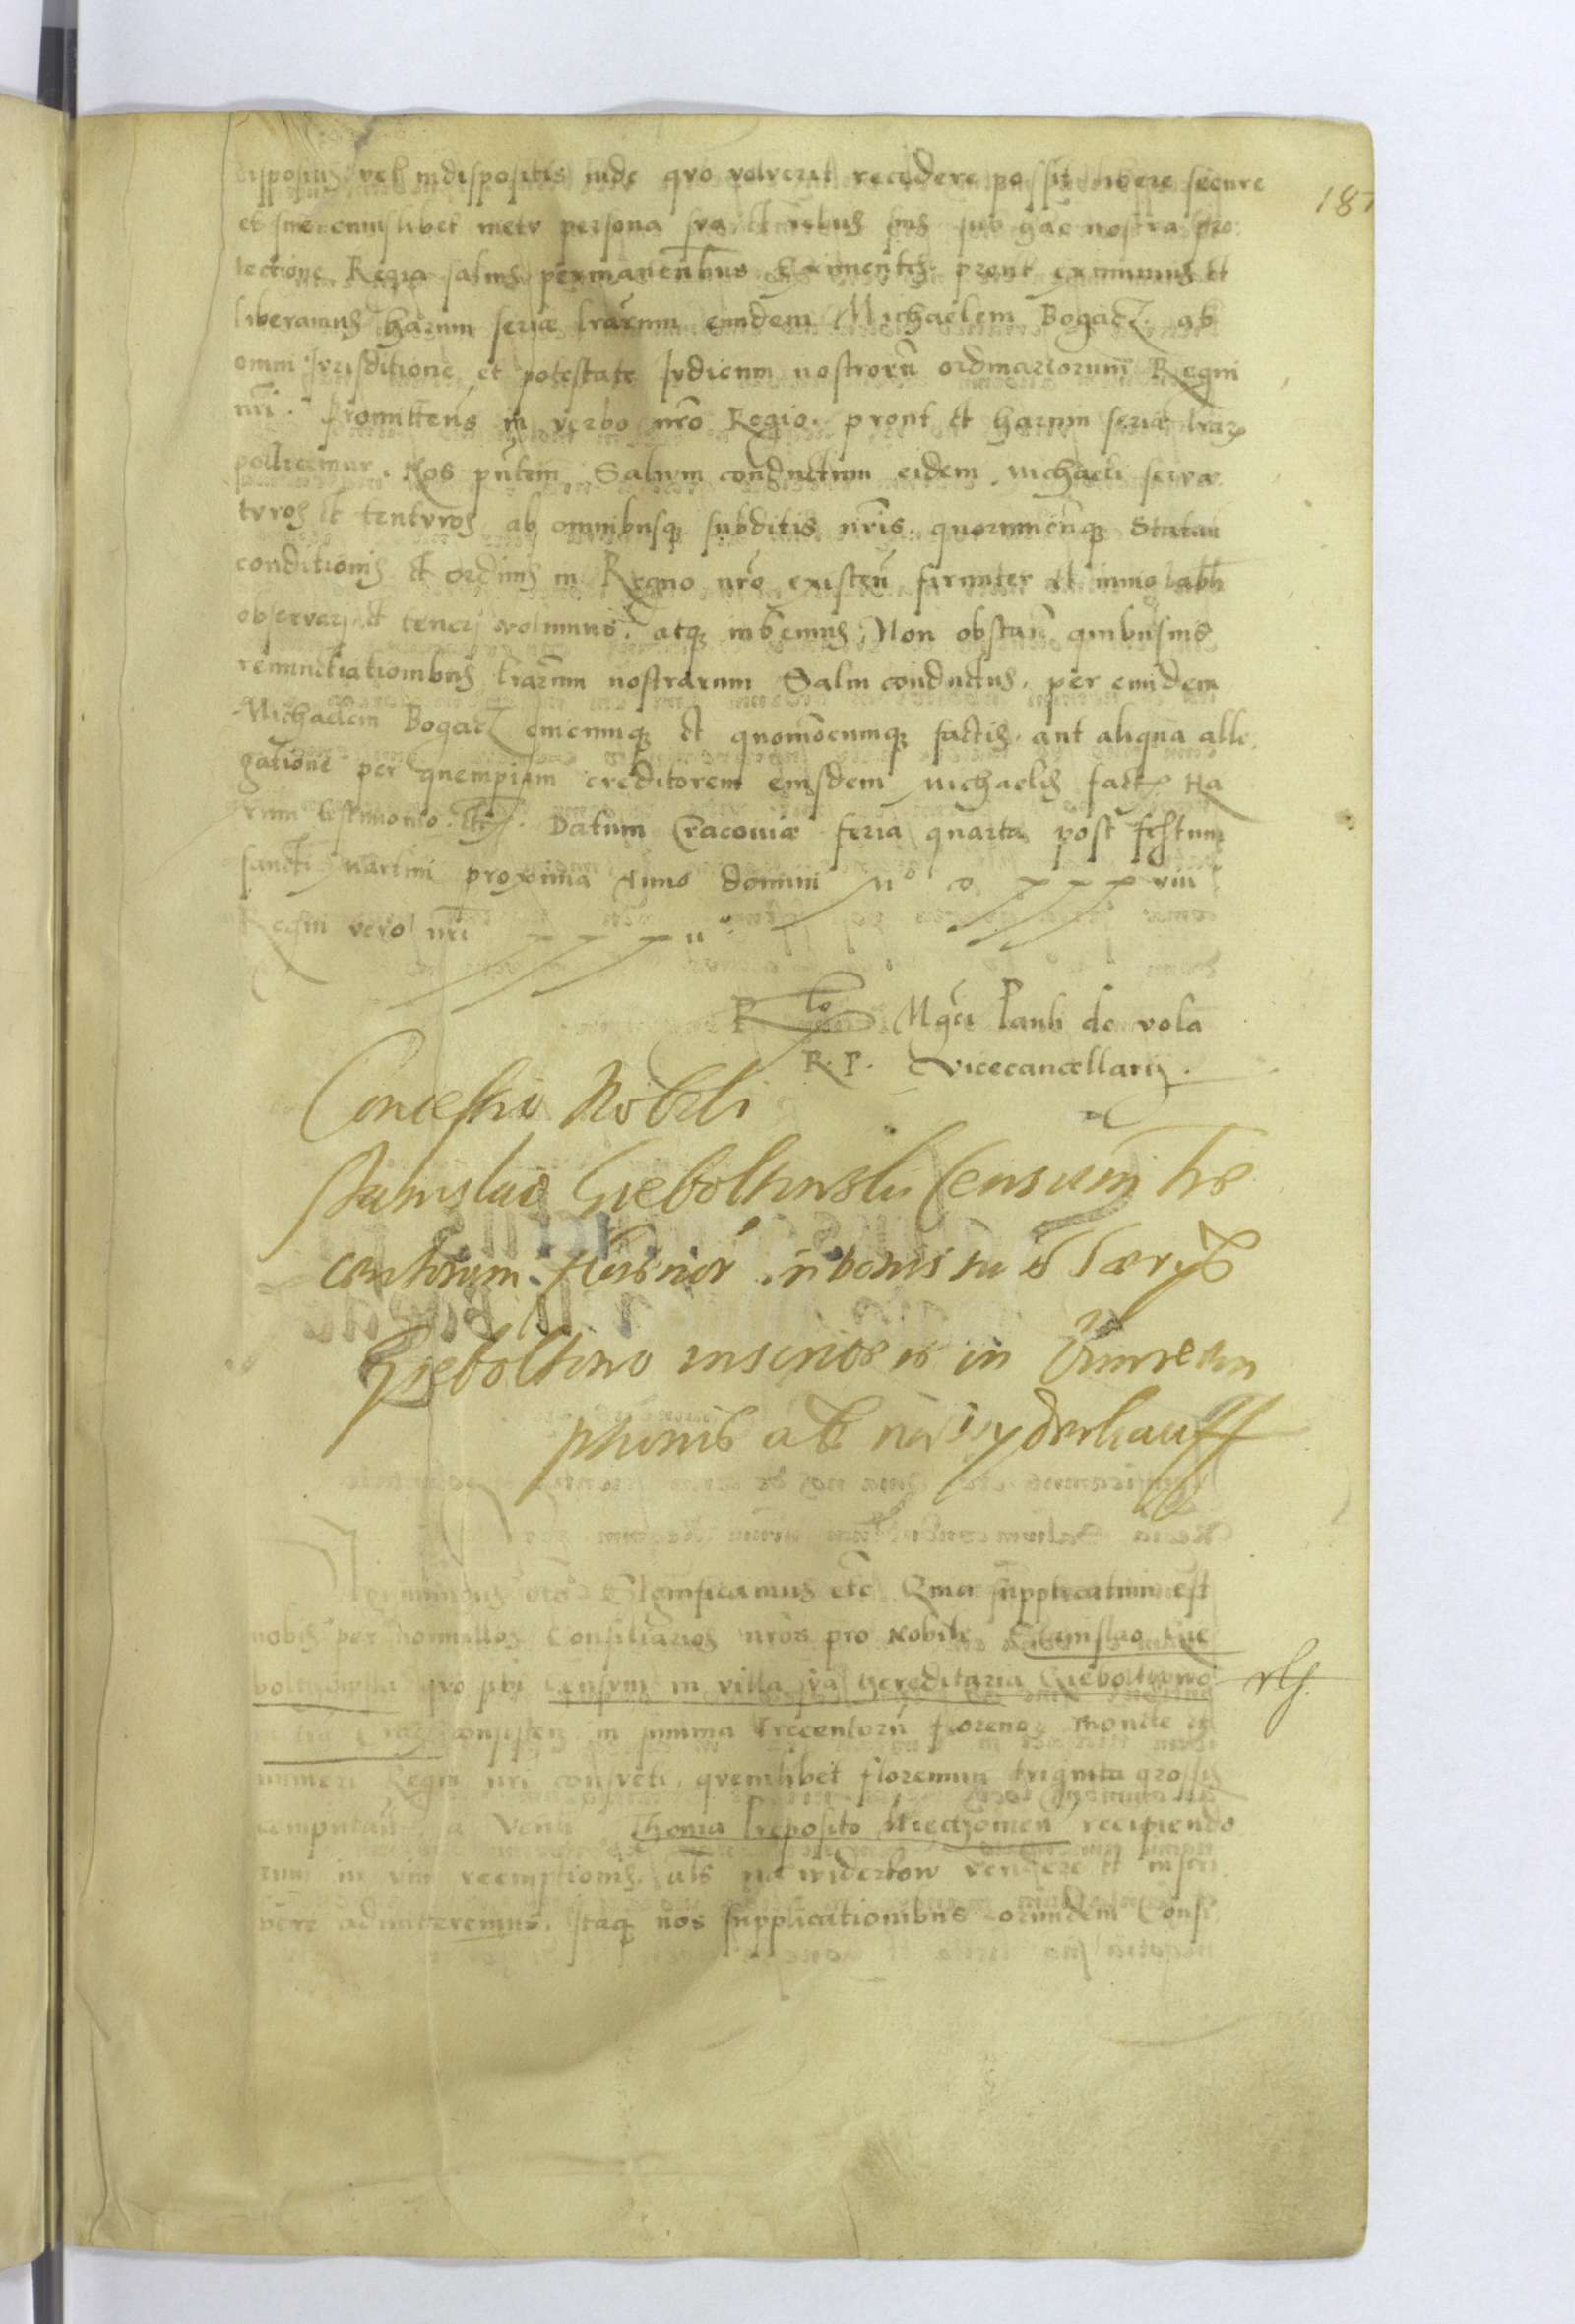 187
dispositis vel indispositis inde qvo volverit recedere possit libere secure
et sine cuiuslibet metv persona sva et rebus suis sub gae nostra pro
tectione Regia salvis permanentibus Eximentes prout eximimus et
liberamus harum serie lrarum eundem Michaelem Bogacz ab
omni Jvrisditione et potestate Jvdicum nostrorū ordinariorum Regni
nri. Promittens in verbo nro Regio. prout et harum serie lrarz
pollicemur. Nos pntem Salvum conductum eidem Michaeli serva
tvros et tentvros ab omnibusq subditis nris. quorumcūq Status
conditionis et ordinis in Regno nro existeñ firmiter et inviolabłr
observarj et tenerj volumus. atq iubemus, Non obstañ quibusuis
renunctiationibus lrarum nostrarum Salui conductus. per eundem
Michaelem Bogacz cuicumq et quomōcumq factis. aut aliqua alle
gatione per quempiam creditorem eiusdem Michaelis fact Ha
rum testimonio. etc. Datum Cracouiæ feria quarta post festum
sancti Martini proxima Anno domini Mº D xxxviii
Regni vero nri xxxii
Rlo Mgci Pauli de vola
R. P. Vicecancellarij.
Concessio Nobili
Stanislao Gieboltowski Censum tre
centorum florenor in bonis suis hær
Gieboltowo inscribere in vim reem
ptionis alś na wyderkauff
Significamus etc Quia supplicatum est
nobis per nonnullos Consiliarios nros pro Nobile Stanislao Gie
boltowski qvo sibi Censvm in villa sva hereditaria Gieboltowo
consisteñ in summa Trecentorū florenor monete et
numeri Regni nri consveti, qvemlibet florenum triginta grossis
computañ a Venli Thoma Preposito Miechovieñ recipiendo
rum in vim reemptionis alś na widerkow vendere et inscri
bere admitteremus. Itaq nos supplicationibus eorundem Consi